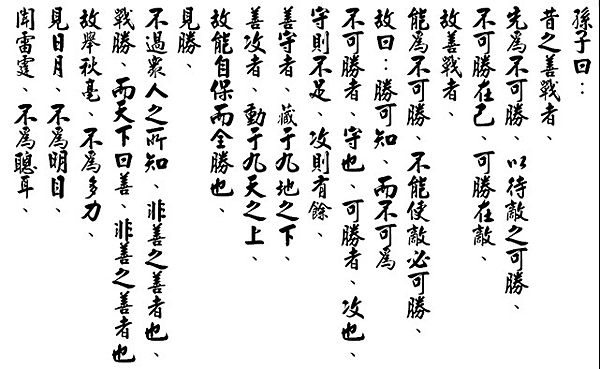 孫子曰：
昔之善戰者、
先為不可勝、以待敵之可勝、
不可勝在己、可勝在敵、
故善戰者、
能為不可勝、不能使敵必可勝、
故曰：勝可知、而不可為
不可勝者、守也、可勝者、攻也、
守則不足、攻則有餘、
善守者、藏于九地之下、
善攻者、動于九天之上、
故能自保而全勝也、
見勝、
不過衆人之所知、非善之善者也、
戰勝、而天下曰善、非善之善者也
故舉秋毫、不為多力、
見日月、不為明目、
聞雷霆、不為聰耳、